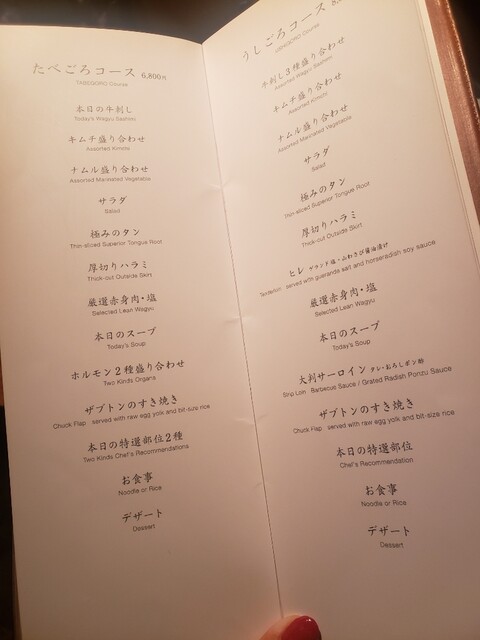 たべごろコース 6,800円
TABEGORO Course
本日の牛刺し
Today's Wagyu Sashimi
キムチ盛り合わせ
Assorted Kimchi
ナムル盛り合わせ
Assorted Marinated Vegetable
サラダ
Salad
極みのタン
Thin-sliced Superior Tongue Root
厚切りハラミ
Thick-cut Outside Skirt
厳選赤身肉・塩
Selected Lean Wagyu
本日のスープ
Today's Soup
ホルモン2種盛り合わせ
Two Kinds Organs
ザブトンのすき焼き
Chuck Flap served with raw egg yolk and bit-size rice
本日の特選部位2種
Two Kinds Chef's Recommendations
お食事
Noodle or Rice
デザート
Dessert
うしごろコース
USHIGORO Course
牛刺し3種盛り合わせ
Assorted Wagyu Sashimi
キムチ盛り合わせ
Assorted Kimchi
ナムル盛り合わせ
Assorted Marinated Vegetable
サラダ
Salad
極みのタン
Thin-sliced Superior Tongue Root
厚切りハラミ
Thick-cut Outside Skirt
ヒレ ゲランド塩・山わさび醤油漬け
Tenderloin served with guerande salt and horseradish soy sauce
厳選赤身肉・塩
Selected Lean Wagyu
本日のスープ
Today's Soup
大判サーロイン タレ・おろしポン酢
Strip Loin Barbecue Sauce / Grated Radish Ponzu Sauce
ザブトンのすき焼き
Chuck Flap served with raw egg yolk and bit-size rice
本日の特選部位
Chef's Recommendation
お食事
Noodle or Rice
デザート
Dessert